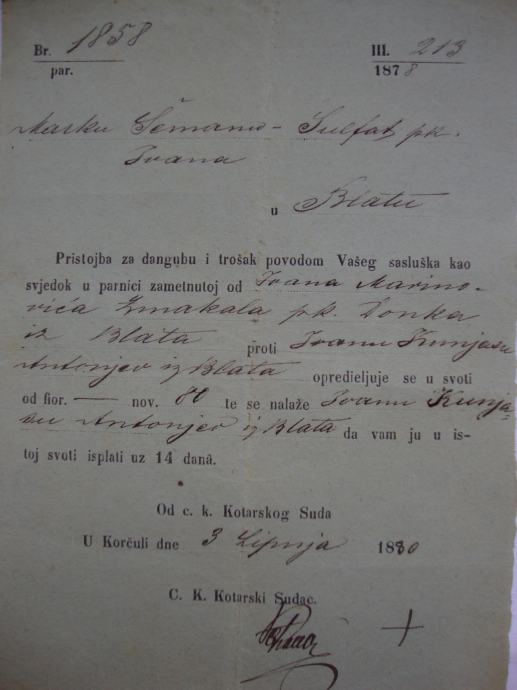 Br. 1858
par.
III. 213
1878
Marku Šemanu - Sulfat pk.
Ivana
u Blatu
Pristojba za dangubu i trošak povodom Vašeg sasluška kao
svjedok u parnici zametnutoj od Ivana Marino-
vića Zmakala pk. Donka
iz Blata proti Ivanu Kunjasu
Antonjev iz Blata opredieljuje se u svoti
od fior. — nov. 80 te se nalaže Ivanu Kunja-
su Antonjev iz Blata da vam ju u is-
toj svoti isplati uz 14 dana.
Od c. k. Kotarskog Suda
U Korčuli dne 3 Lipnja 1880
C. K. Kotarski Sudac.